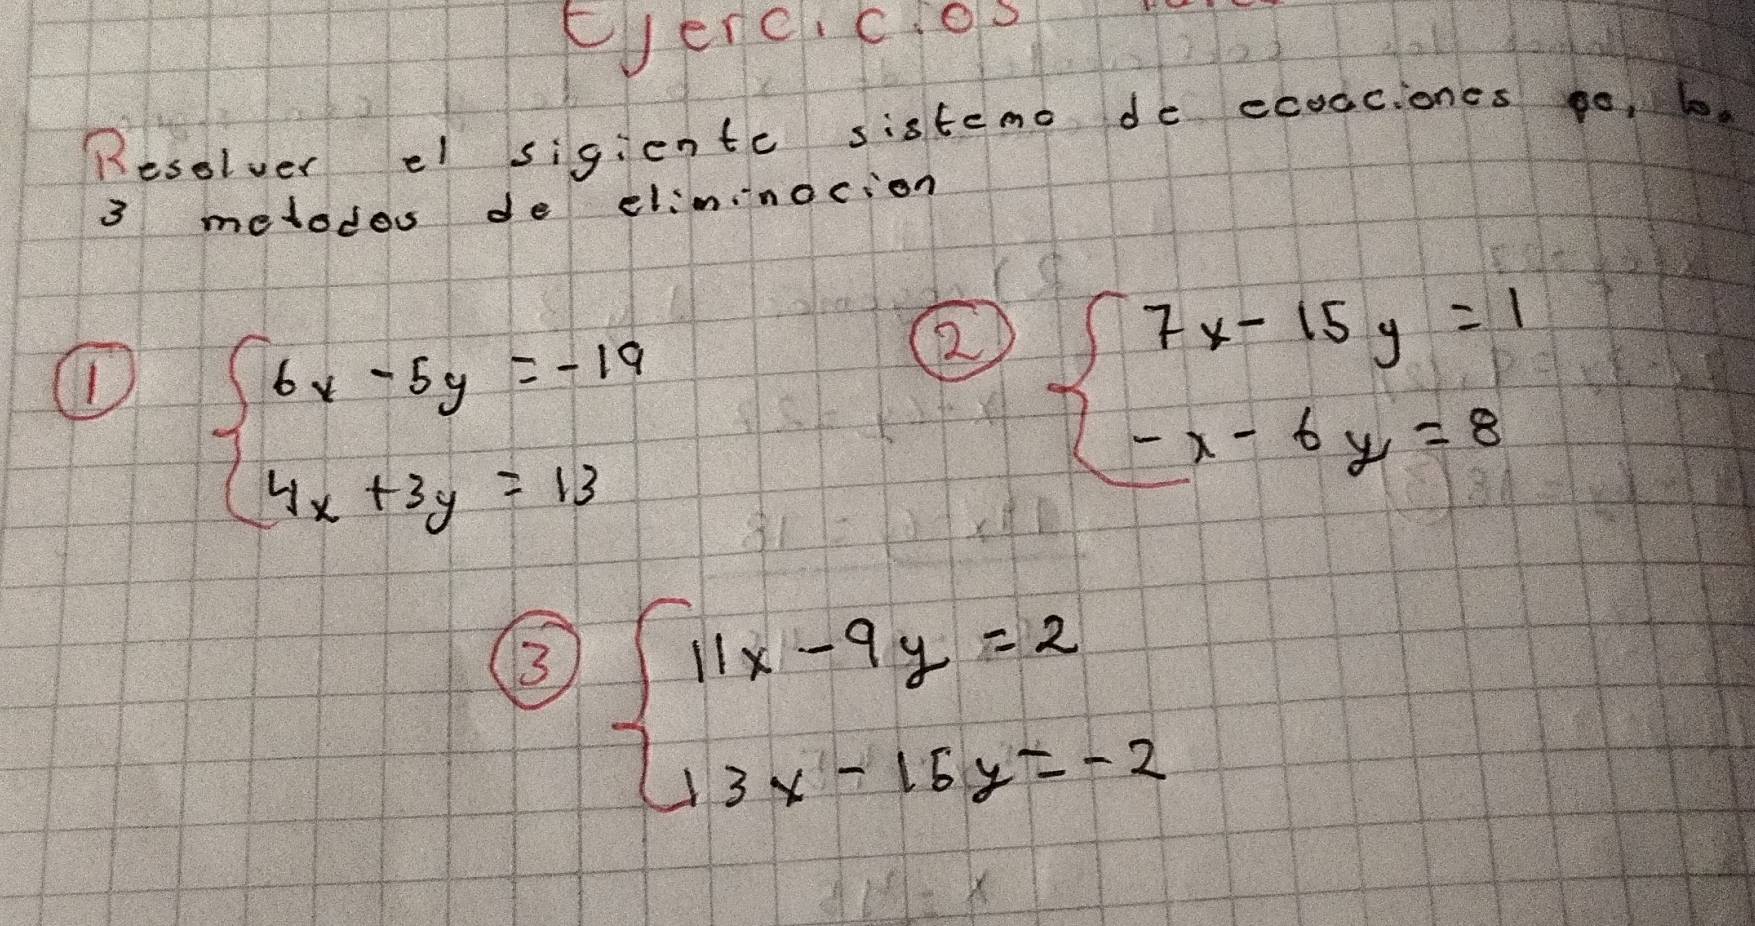 Ejercicios
Resolver el sigiente sistema de ecuaciones po, lo.
3 metodos de eliminacion
① { 6x - 5y = -19
4x + 3y = 13
② { 7x - 15y = 1
-x - 6y = 8
③ { 11x - 9y = 2
13x - 15y = -2